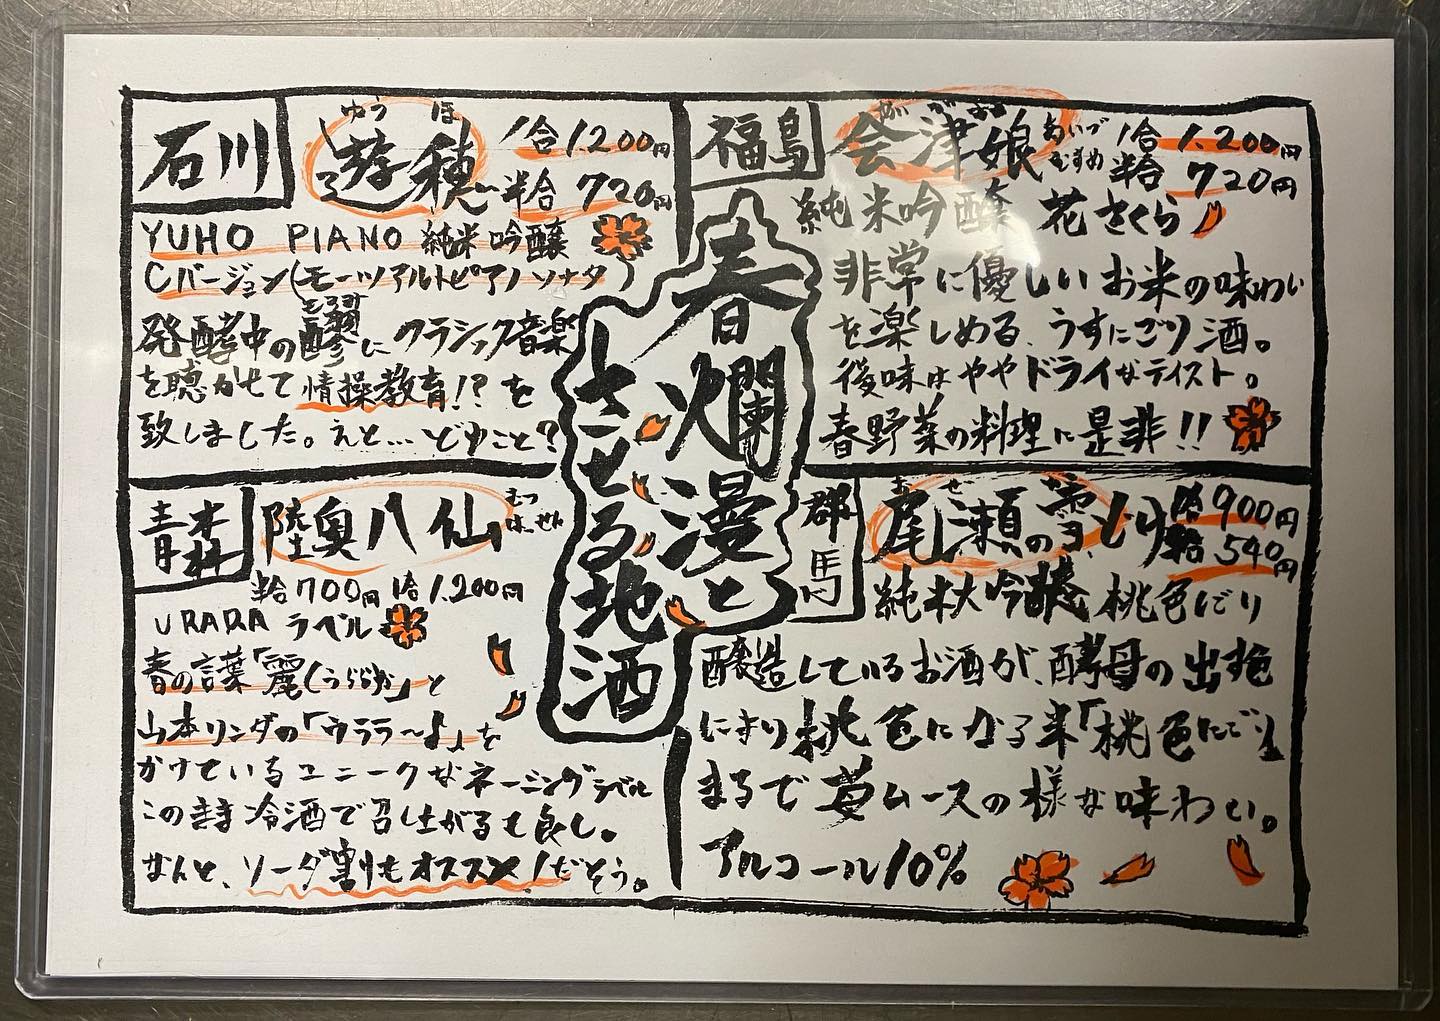 石川
ゆうほ
遊穂
1合 1.200円
半合 720円
YUHO PIANO 純米吟醸
Cバージョン(モーツアルトピアノソナタ)
もろみ
発酵中の醪にクラシック音楽
を聴かせて情操教育!?を
致しました。えと…どゆこと?
福島
会津娘
あいづ
むすめ
1合 1.200円
半合 720円
純米吟醸 花さくら
非常に優しいお米の味わい
を楽しめる、うすにごり酒。
後味はややドライなテイスト。
春野菜の料理に是非!!
春爛漫と
させる地酒
青森
陸奥八仙
むつ
はっせん
半合700円 1合1.200円
URARA ラベル
春の言葉「麗(うららか)」と
山本リンダの「ウララ〜♪」を
かけているユニークなネーミングラベル
このまま冷酒で召し上がるも良し。
なんと、ソーダ割りもオススメ!だそう。
群馬
おぜ
尾瀬の雪どけ
1合 900円
半合 540円
純米大吟醸 桃色にごり
醸造しているお酒が、酵母の出す色
により桃色になる为「桃色にごり」
まるで苺ムースの様な味わい。
アルコール10%